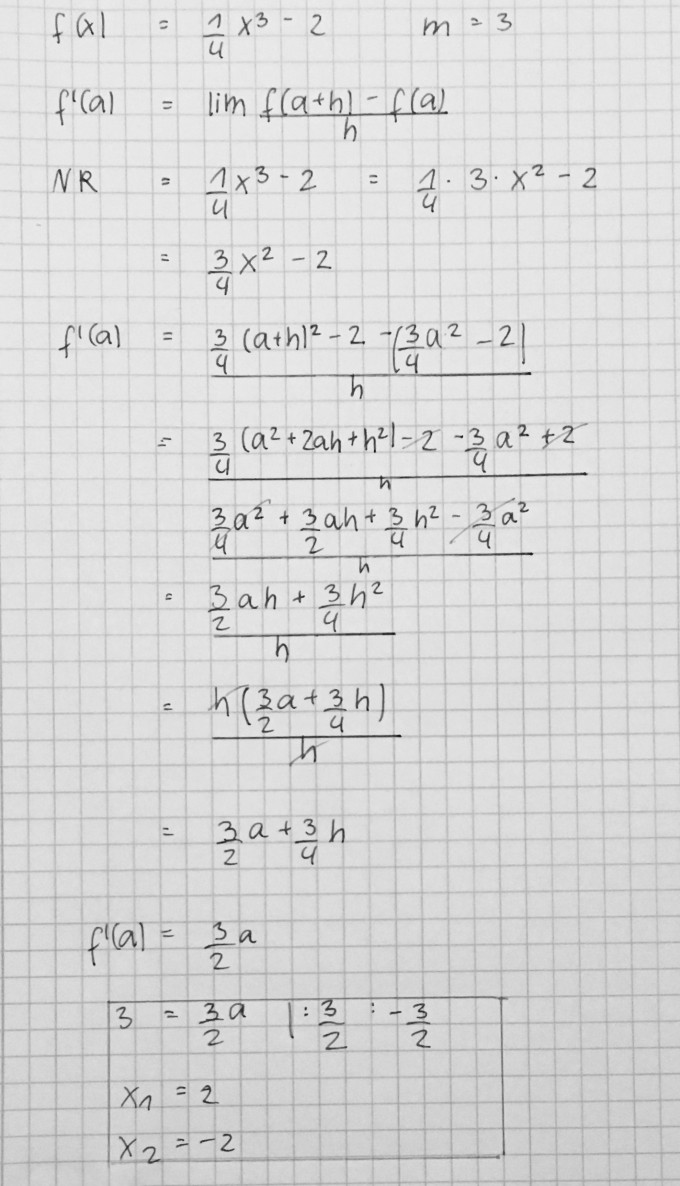 f(x) = 1/4 x³ - 2 m = 3
f'(a) = lim f(a+h) - f(a) / h
NR = 1/4 x³ - 2 = 1/4 · 3 · x² - 2
= 3/4 x² - 2
f'(a) = 3/4 (a+h)² - 2 - (3/4 a² - 2) / h
= 3/4 (a² + 2ah + h²) - 2 - 3/4 a² + 2 / h
3/4 a² + 3/2 ah + 3/4 h² - 3/4 a² / h
= 3/2 ah + 3/4 h² / h
= h (3/2 a + 3/4 h) / h
= 3/2 a + 3/4 h
f'(a) = 3/2 a
3 = 3/2 a | : 3/2 : - 3/2
x₁ = 2
x₂ = -2